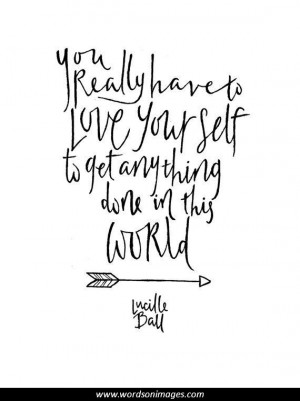 you
Really have to
Love yourself
to get anything
done in this
World
Lucille
Ball
www.wordsonimages.com